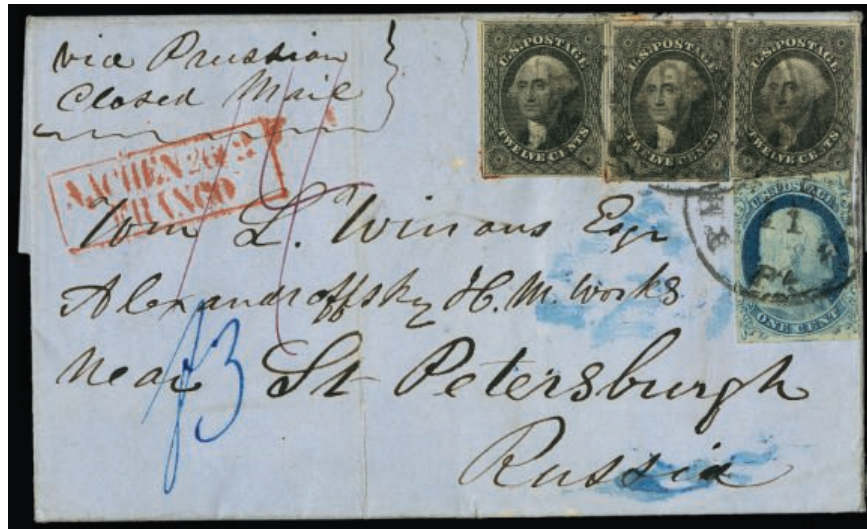 via Prussian
Closed Mail
U.S. POSTAGE
TWELVE CENTS
U.S. POSTAGE
TWELVE CENTS
U.S. POSTAGE
TWELVE CENTS
AACHEN
FRANCO
U.S. POSTAGE
ONE CENT
21
Wm L. Winans Esqr
Alexandroffsky H. M. Works
Near St Petersburgh
Russia